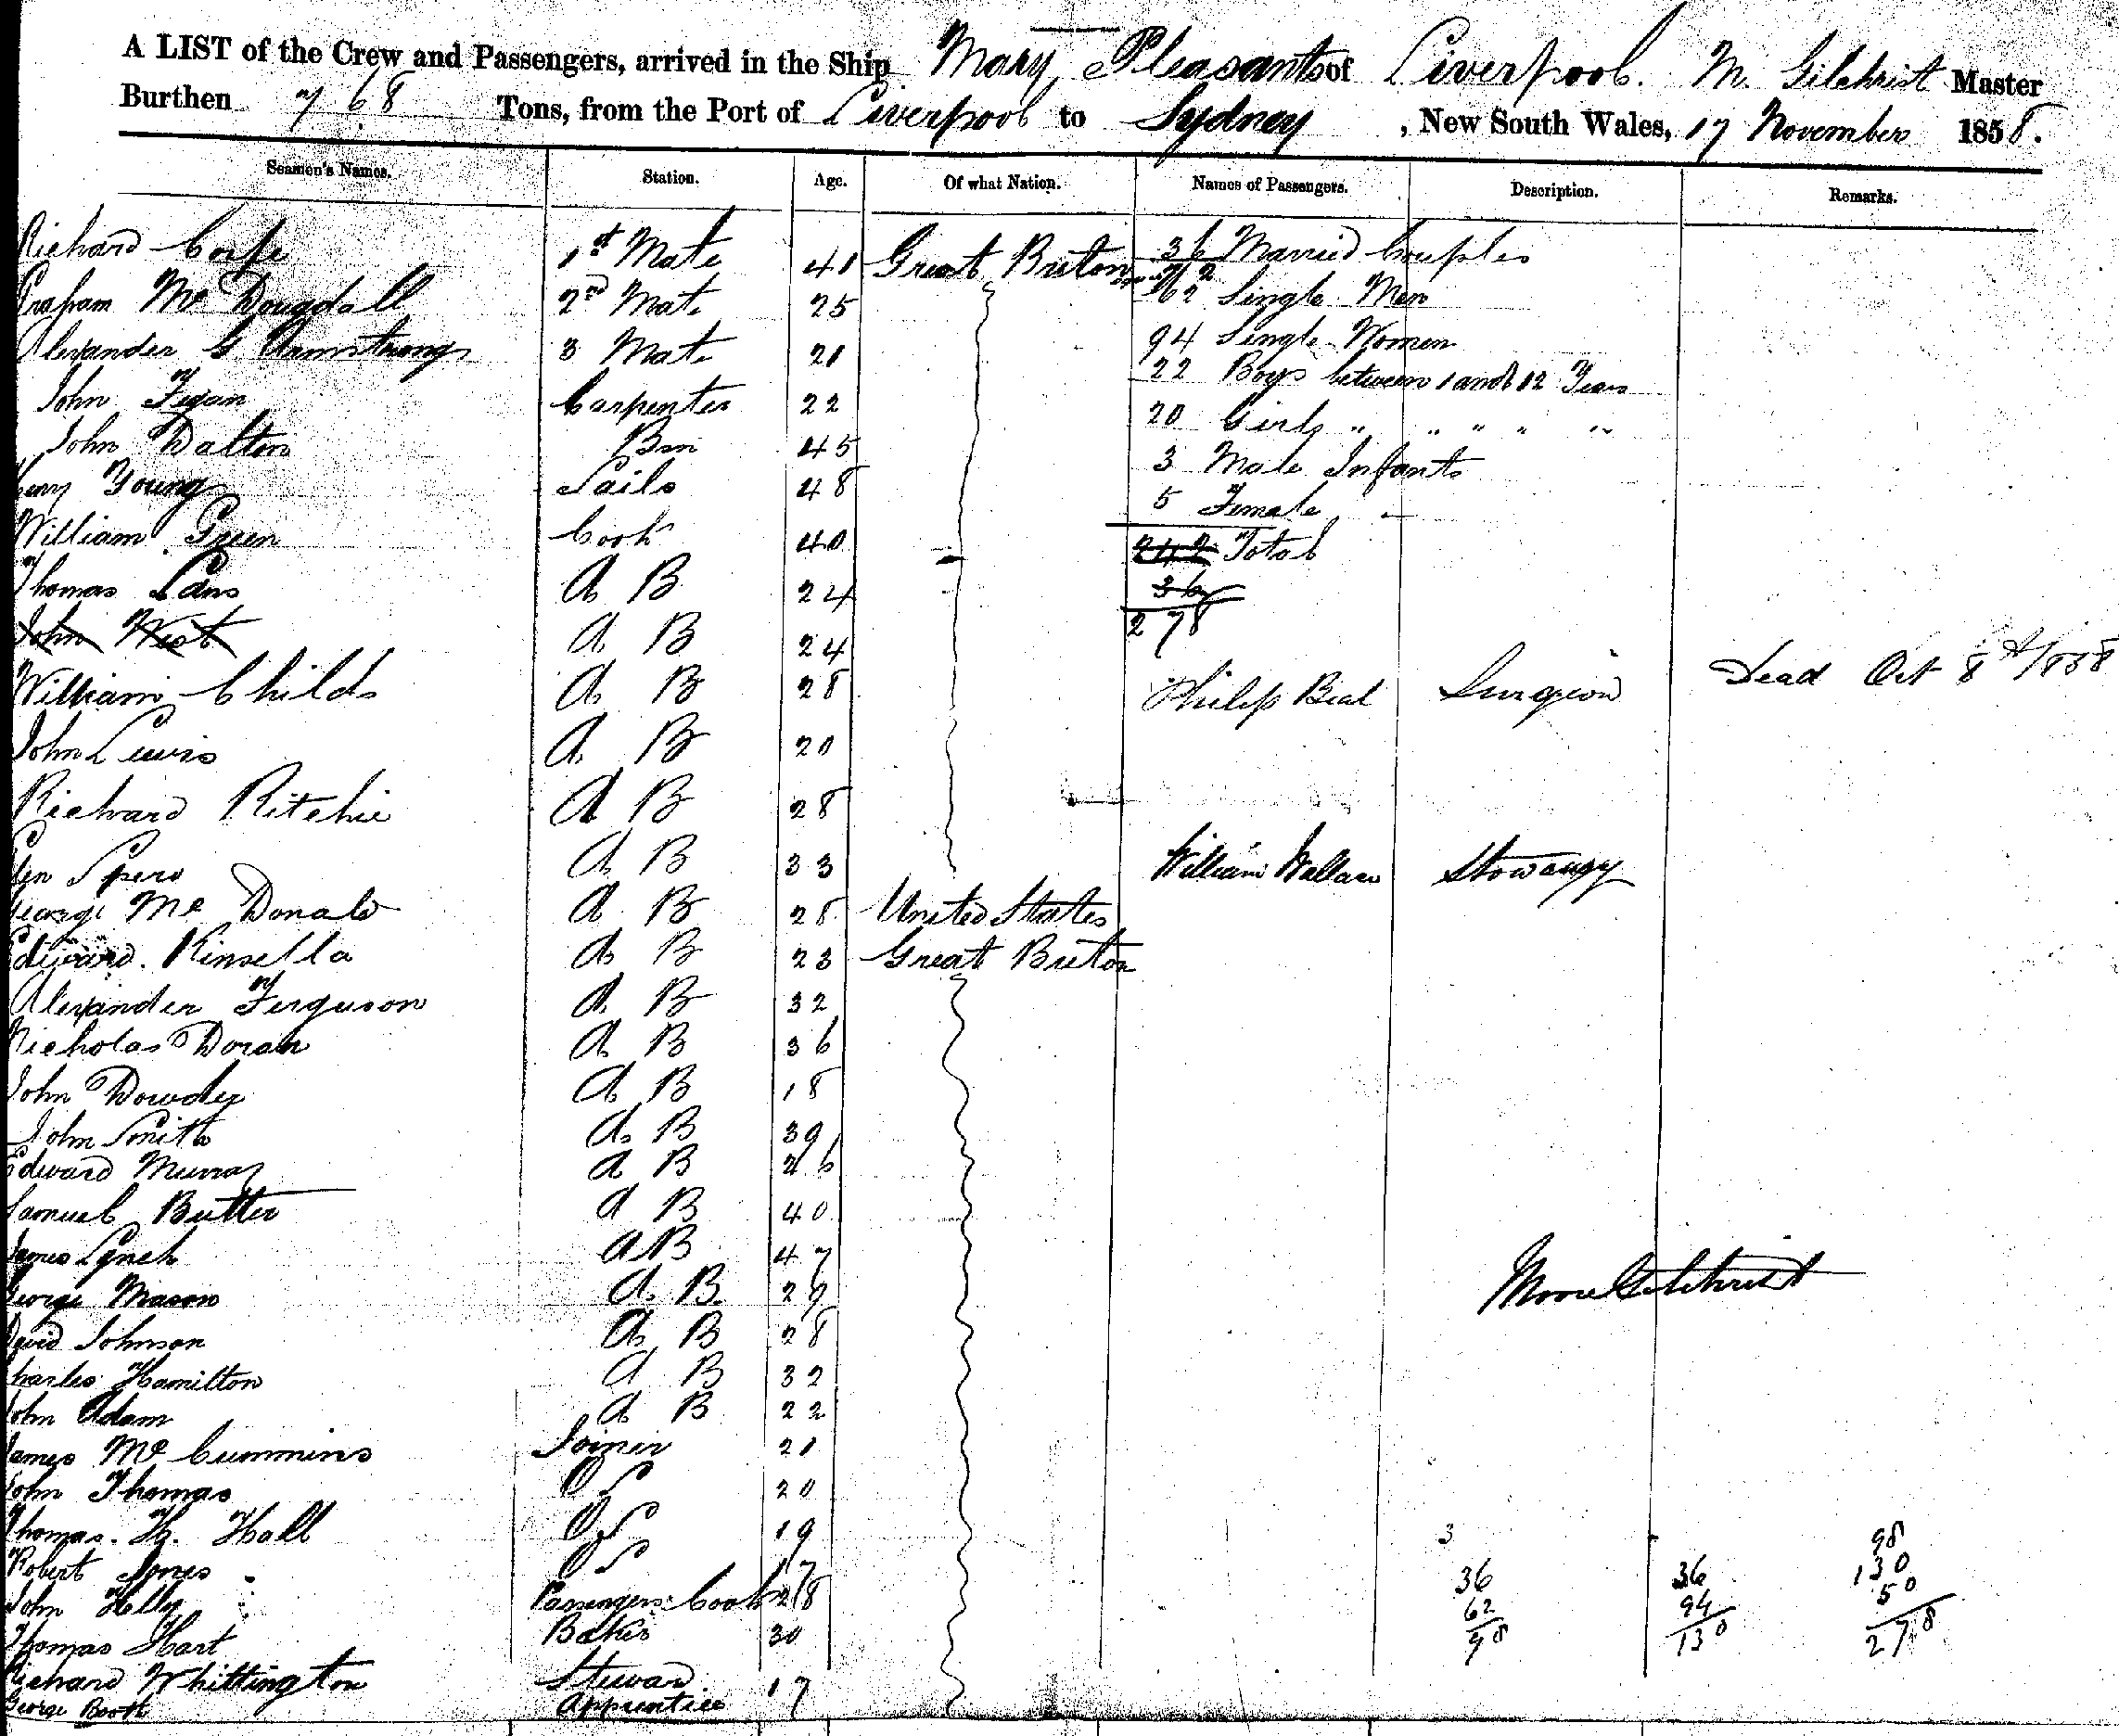 A LIST of the Crew and Passengers, arrived in the Ship Mary Pleasants of Liverpool. M. Gilchrist Master
Burthen 768 Tons, from the Port of Liverpool to Sydney, New South Wales, 17 November 1858.
Seamen's Names. Station. Age. Of what Nation. Names of Passengers. Description. Remarks.
Richard Corfe 1st Mate 41 Great Briton 36 Married Couples
72
Graham Mc Dougdall 2nd Mate 25 62 Single Men
Alexander G Armstrong 3 Mate 21 94 Single Women
22 Boys between 1 and 12 Years
John Fegan Carpenter 22
20 Girls " " " " "
John Dalton Bm 45 3 Male Infants
Henry Young Sails 48 5 Female "
William Green Cook 40 242 Total
Thomas A B 24 36
John West A B 24 278
William Childs A B 28 Philip Beal Surgeon Dead Oct 8th/1858
John Lewis A B 20
Richard Ritchie A B 28
Spero A B 33 William Wallace Stowaway
George Mc Donald A B 28 United States
Edward Kinsella A B 23 Great Briton
Alexander Ferguson A B 32
Nicholas Doran A B 36
John Dowdey A B 18
John Smith A B 39
Edward Murray A B 26
Samuel Butter A B 40
James Lynch A B 47
George Mason A B 29 Moore Gilchrist
David Johnson A B 28
Charles Hamilton A B 32
John Adam A B 22
James Mc Cummins Joiner 21
John Thomas O S 20
Thomas. H. Hall O S 19 3 98
Robert Jones O S 17 36 36 130
John Passengers Cook 28 62 94 50
Thomas Hart Baker 30 98 130 278
Richard Whittington Steward
George Booth Apprentice 17